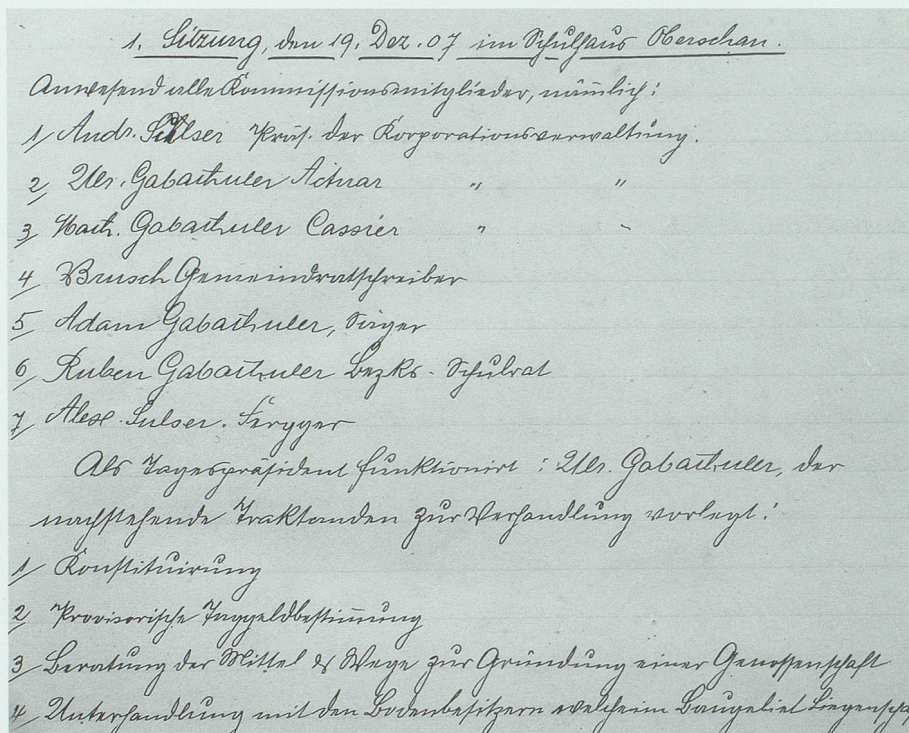 1. Sitzung, den 19. Dez. 07 im Schulhaus Oberschan.
Anwesend alle Kommissionsmitglieder, nämlich:
1/ Andr. Sulser Präs. der Korporationsverwaltung.
2/ Ulr. Gabathuler Actuar " "
3/ Math. Gabathuler Cassier " "
4/ Brusch Gemeindratschreiber
5/ Adam Gabathuler,
6/ Ruben Gabathuler Bezks-Schulrat
7/ Alex. Sulser. Fergger
Als Tagespräsident funktionirt: Ulr. Gabathuler, der
nachstehende Traktanden zur Verhandlung vorlegt:
1/ Konstituirung
2/ Provisorische Taggeldbestim̄ung
3/ Beratung der Mittel & Wege zur Gründung einer Genossenschaft
4/ Unterhandlung mit den Bodenbesitzern welche im Baugebiet Liegenscha